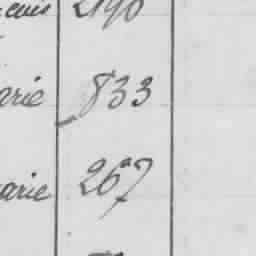 2190
arie 833
arie 267